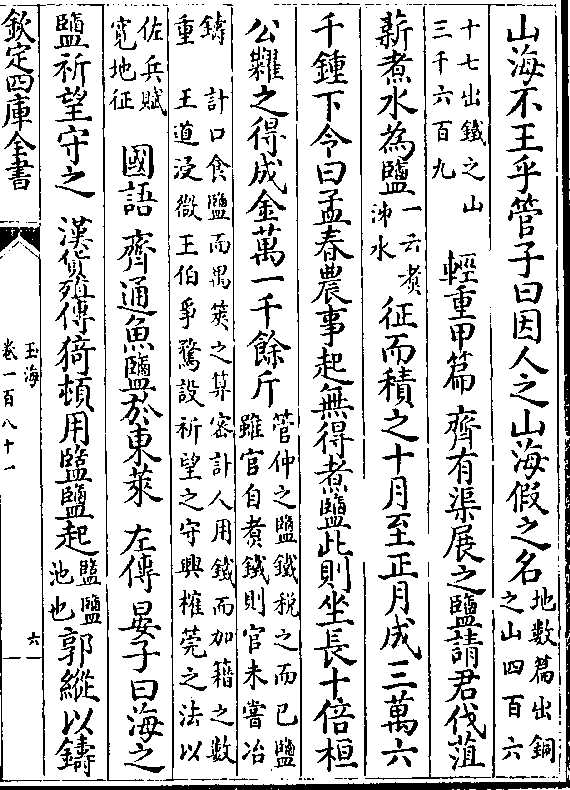 山海不王乎管子曰因人之山海假之名地數篇出銅之山四百六
十七出鐵之山三千六百九 輕重甲篇 齊有渠展之鹽請君伐菹
薪煮水為鹽一云煮沸水征而積之十月至正月成三萬六
千鍾下令曰孟春農事起無得煮鹽此則坐長十倍桓
公糶之得成金萬一千餘斤管仲之鹽鐵税之而已鹽雖官自煮鐵則官未嘗冶
鑄 計口食鹽而禺筴之算密計人用鐵而加籍之數
重 王道浸微王伯爭騖設祈望之守興榷筦之法以
佐兵賦寛地征 國語 齊通魚鹽於東萊 左傳晏子曰海之
鹽祈望守之 漢貨殖傳猗頓用盬鹽起盬鹽池也郭縱以鑄
欽定四庫全書
玉海
卷一百八十一
六